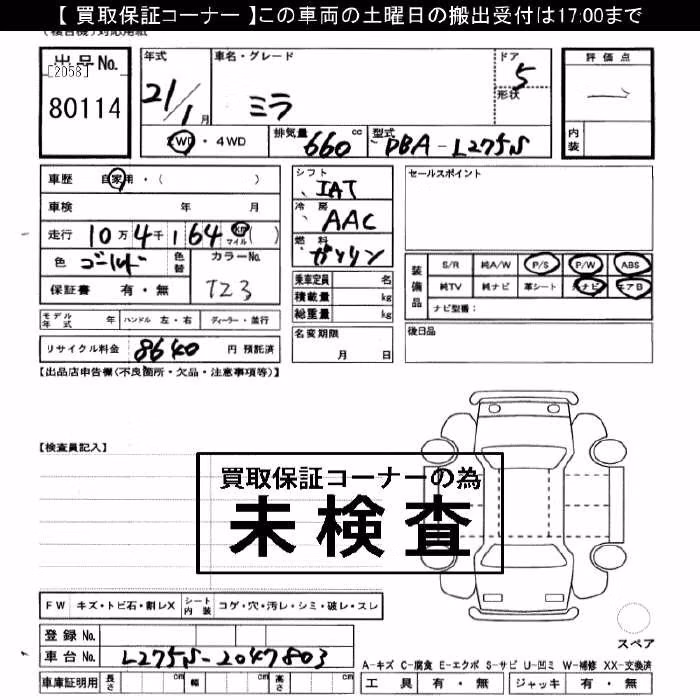 【 買取保証コーナー 】この車両の土曜日の搬出受付は17:00まで
出品No.
[2058]
80114
年式
21/1月
車名・グレード
ミラ
ドア
5
形状
評価点
内装
2WD・4WD
排気量 660 cc
型式 DBA-L275S
車歴 自家用・( )
車検 年 月
走行 10万4千164 km マイル ( )
色 ゴールド 色替
カラーNo.
T23
保証書 有・無
シフト
IAT
冷房
AAC
燃料
ガソリン
乗車定員 名
積載量 kg
総重量 kg
セールスポイント
装備品
S/R 純A/W P/S P/W ABS
純TV 純ナビ 革シート エアB
ナビ型番:
モデル年式 年 ハンドル 左・右 ディーラー・並行
名変期限
月 日
後日品
リサイクル料金 8640 円 預託済
【出品店申告欄(不良箇所・欠品・注意事項等)】
【検査員記入】
買取保証コーナーの為
未検査
FW キズ・トビ石・割レX シート内装 コゲ・穴・汚レ・シミ・破レ・スレ
登録No.
車台No. L275S-2047803
スペア
A-キズ C-腐食 E-エクボ S-サビ U-凹ミ W-補修 XX-交換済
車庫証明用 長さ cm 幅 cm 高さ cm
工具 有・無 ジャッキ 有・無